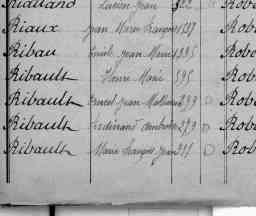 Rialland Lucien Jean 322 Robe
Riaux Jean Marie François 1537 Robe
Ribau Emile Jean Marie 1395 Robe
Ribault Henri Marie 595 Robe
Ribault Ernest Jean Mathurin 299 O Robe
Ribault Ferdinand Ambroise 279 O Rob
Ribault Marie François Jean 211 O Rob